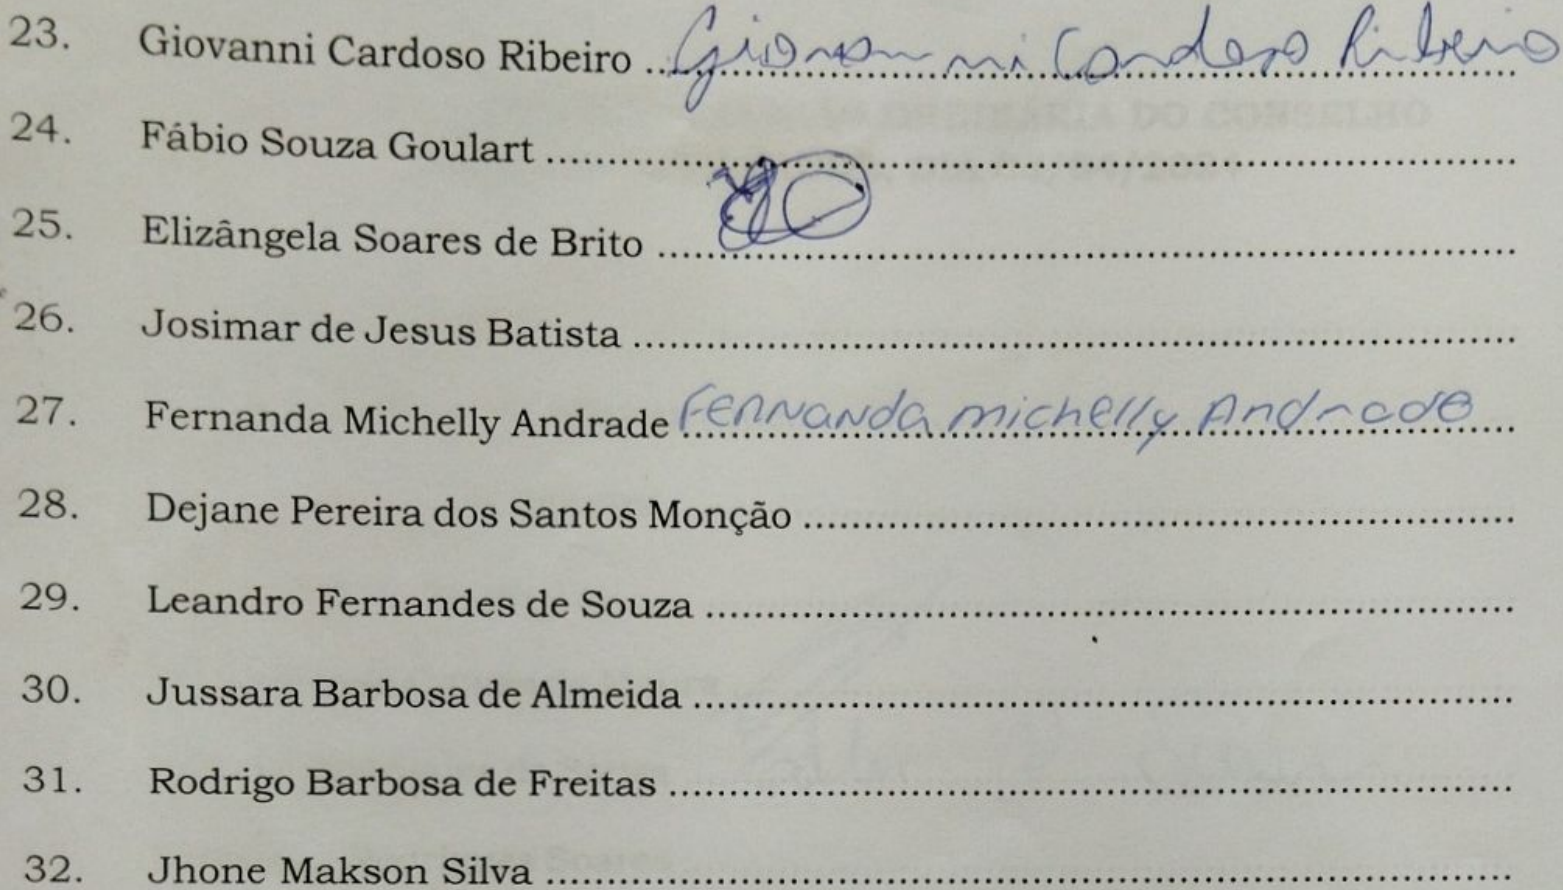 23. Giovanni Cardoso Ribeiro ..... Giovanni Cardoso Ribeiro
24. Fábio Souza Goulart .....
25. Elizângela Soares de Brito .....
26. Josimar de Jesus Batista .....
27. Fernanda Michelly Andrade ..... Fernanda michelly Andrade
28. Dejane Pereira dos Santos Monção .....
29. Leandro Fernandes de Souza .....
30. Jussara Barbosa de Almeida .....
31. Rodrigo Barbosa de Freitas .....
32. Jhone Makson Silva .....